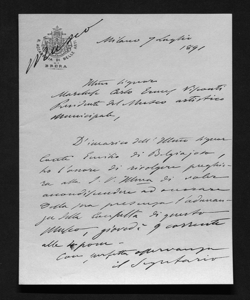 Milano 7 Luglio
1891
Illmo Signor
Carlo Ermes Visconti
Presidente del Museo artistico
Municipale,
D'incarico dell'Illmo Signor
Conte Emilio di Belgiojoso,
ho l'onore di rivolgere preghiera
alla S. V. Illma di voler
accondiscendere ad onorare
della sua presenza l'adunanza
della Consulta di questo
Museo, giovedì 9 corrente
alle pom.
Con
il Segretario
BRERA